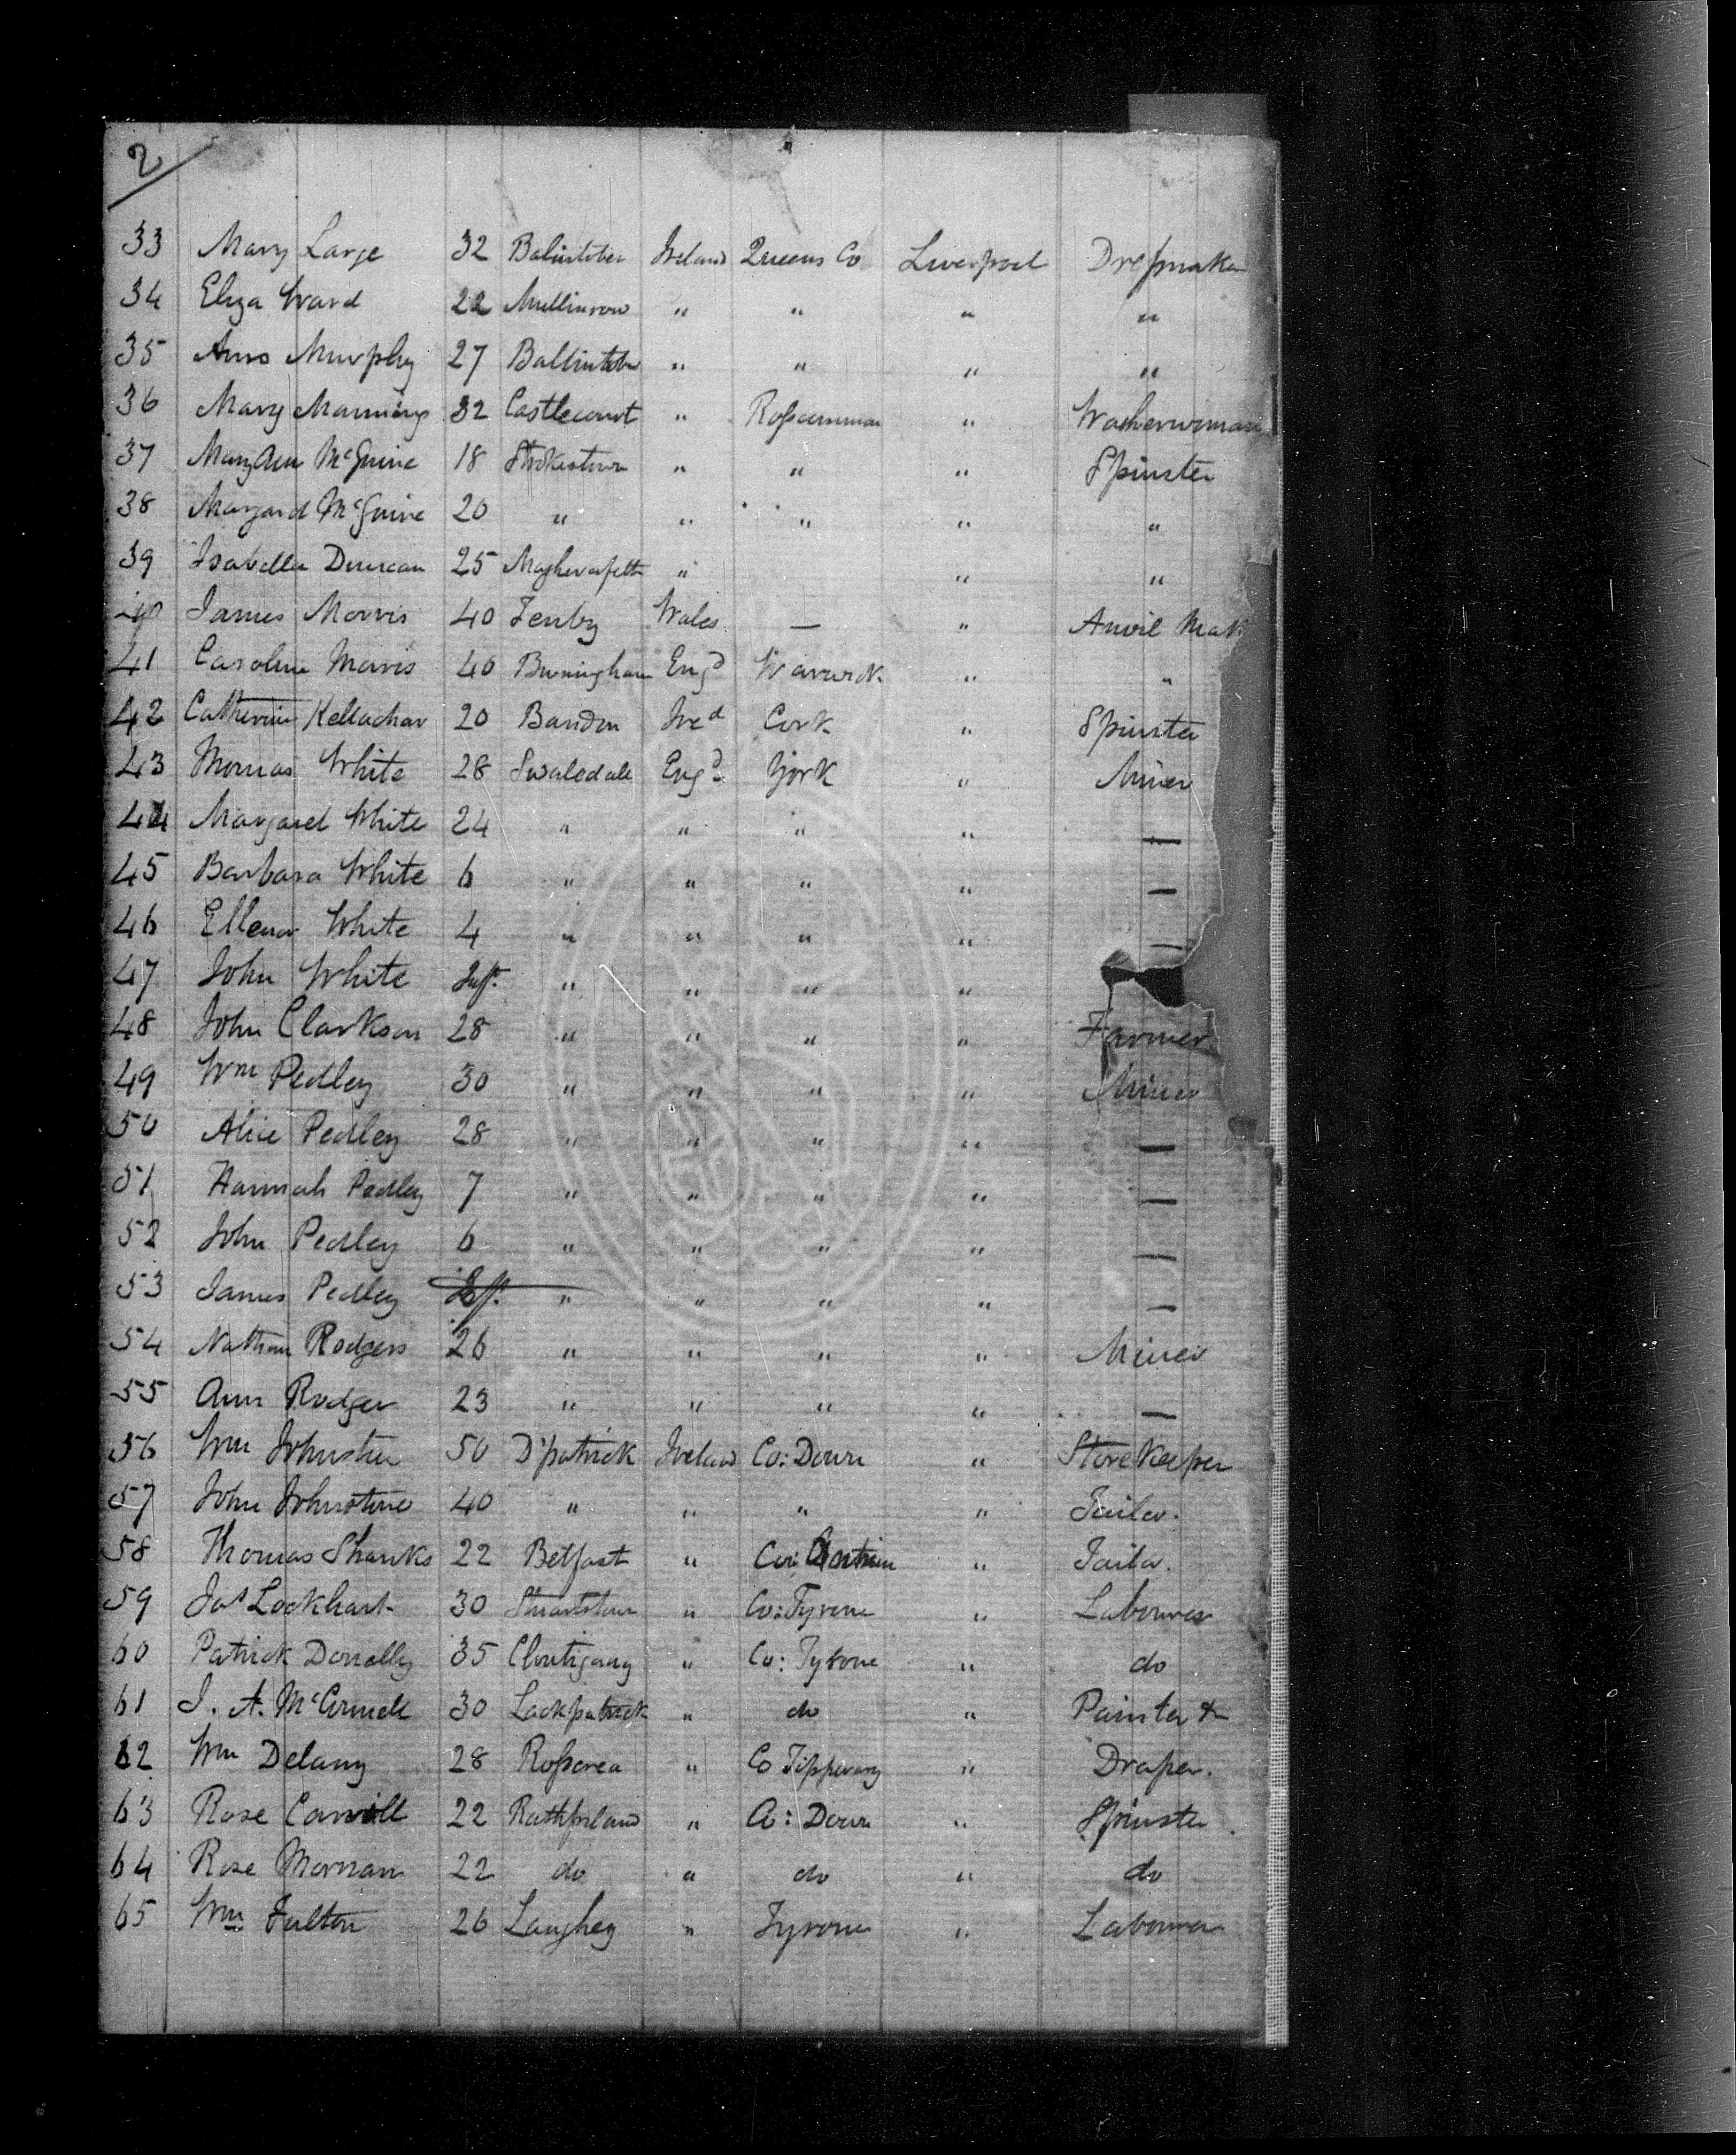 2
33 Mary Large 32 Balintober Ireland Queens Co Liverpool Dressmaker
34 Eliza Ward 22 Mullinrow " " " "
35 Ann Murphy 27 Ballintober " " " "
36 Mary Mannings 32 Castlecourt " Rosscummon " Washerwoman
37 Mary Ann McGuire 18 Strokestown " " " Spinster
38 Margaret McGuire 20 " " " " "
39 Isabella Duncan 25 Magherafelt " " "
40 James Morris 40 Tenby Wales — " Anvil Mak
41 Caroline Morris 40 Birmingham Engd Warwick " "
42 Catherine Kellachar 20 Bandon Ired Cork " Spinster
43 Thomas White 28 Swaledale Engd York " Miner
44 Margaret White 24 " " " " —
45 Barbara White 6 " " " " —
46 Ellenor White 4 " " " " —
47 John White Inft " " " "
48 John Clarkson 28 " " " " Farmer
49 Wm Pedley 30 " " " " Miner
50 Alice Pedley 28 " " " " —
51 Hannah Pedley 7 " " " " —
52 John Pedley 6 " " " " —
53 James Pedley " " " " —
54 Nathan Rodgers 26 " " " " Miner
55 Ann Rodger 23 " " " " —
56 Wm Johnston 50 D'patrick Ireland Co: Down " Storekeeper
57 John Johnstone 40 " " " " Tailor.
58 Thomas Shanks 22 Belfast " Co: Antrim " Tailor.
59 Jas Lockhart 30 Stuartstown " Co: Tyrone " Labourer
60 Patrick Donolly 35 " Co: Tyrone " do
61 J. A. McConnell 30 Lackpatrick " do " Painter &
62 Wm Delany 28 Rosscrea " Co Tipperary " Draper.
63 Rose Carvill 22 Rathfriland " Co: Down " Spinster
64 Rose Mornan 22 do " do " do
65 Wm Fulton 26 Laughey " Tyrone " Labourer